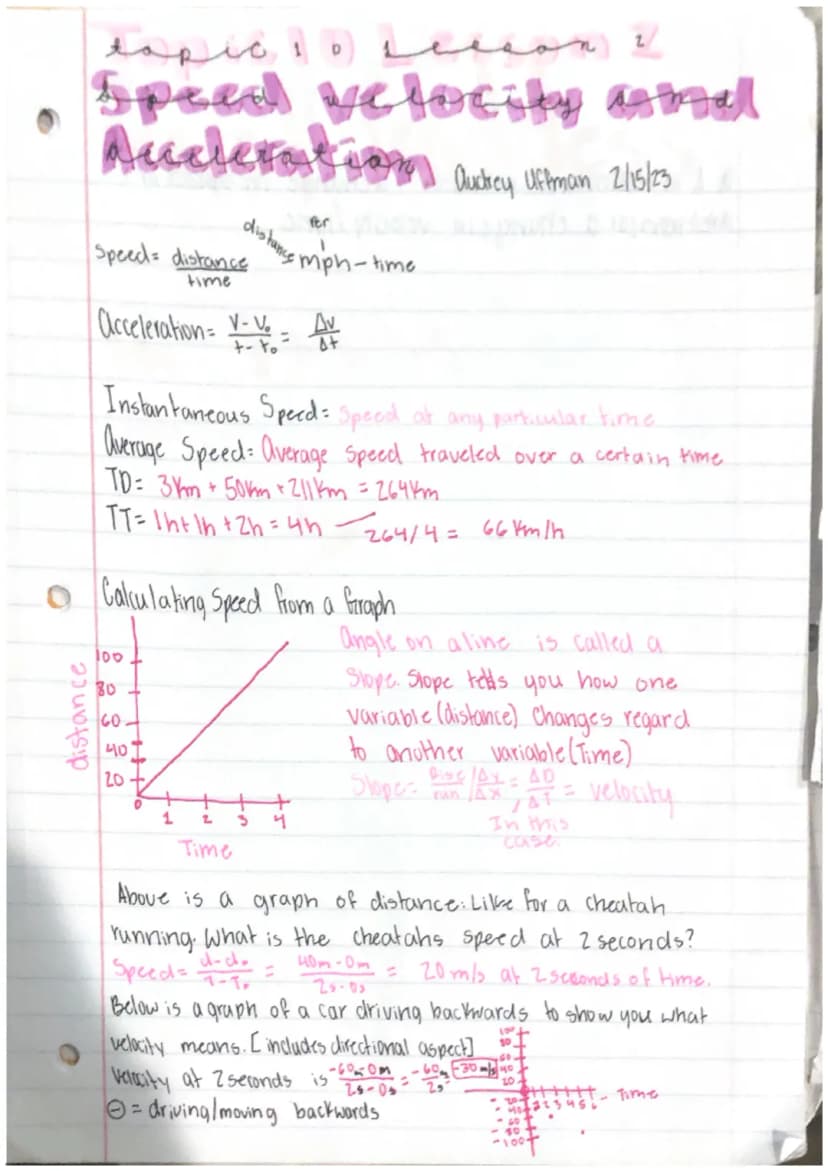 topic 10 Lesson 2
Speed velocity and
Acceleration
Audrey Uffman 2/15/23
distance per
Speed= distance/time mph-time
Acceleration= V-V₀/t-t₀ = Δv/Δt
Instantaneous Speed= Speed at any particular time
Average Speed= Average Speed traveled over a certain time
TD= 3km + 50km + 211km = 264km
TT= 1h+1h+2h=4h 264/4= 66 km/h
Calculating Speed from a Graph
distance
100
80
60
40
20
0 1 2 3 4
Time
Angle on a line is called a
Slope. Slope tells you how one
variable (distance) changes regard
to another variable (Time)
Slope= Rise/run / Δy/Δx = ΔD/ΔT = velocity
In this
case.
Above is a graph of distance: Like for a cheatah
running. What is the cheatahs speed at 2 seconds?
Speed= d-d₀/T-T₀ = 40m-0m/2s-0s = 20 m/s at 2 seconds of time.
Below is a graph of a car driving backwards to show you what
velocity means. [includes directional aspect]
velocity at 2 seconds is -60m-0m/2s-0s = -60m/2s -30 m/s
⊖ = driving/moving backwards
100
80
60
40
20
1 2 3 4 5 6 - Time
-20
-40
-60
-80
-100